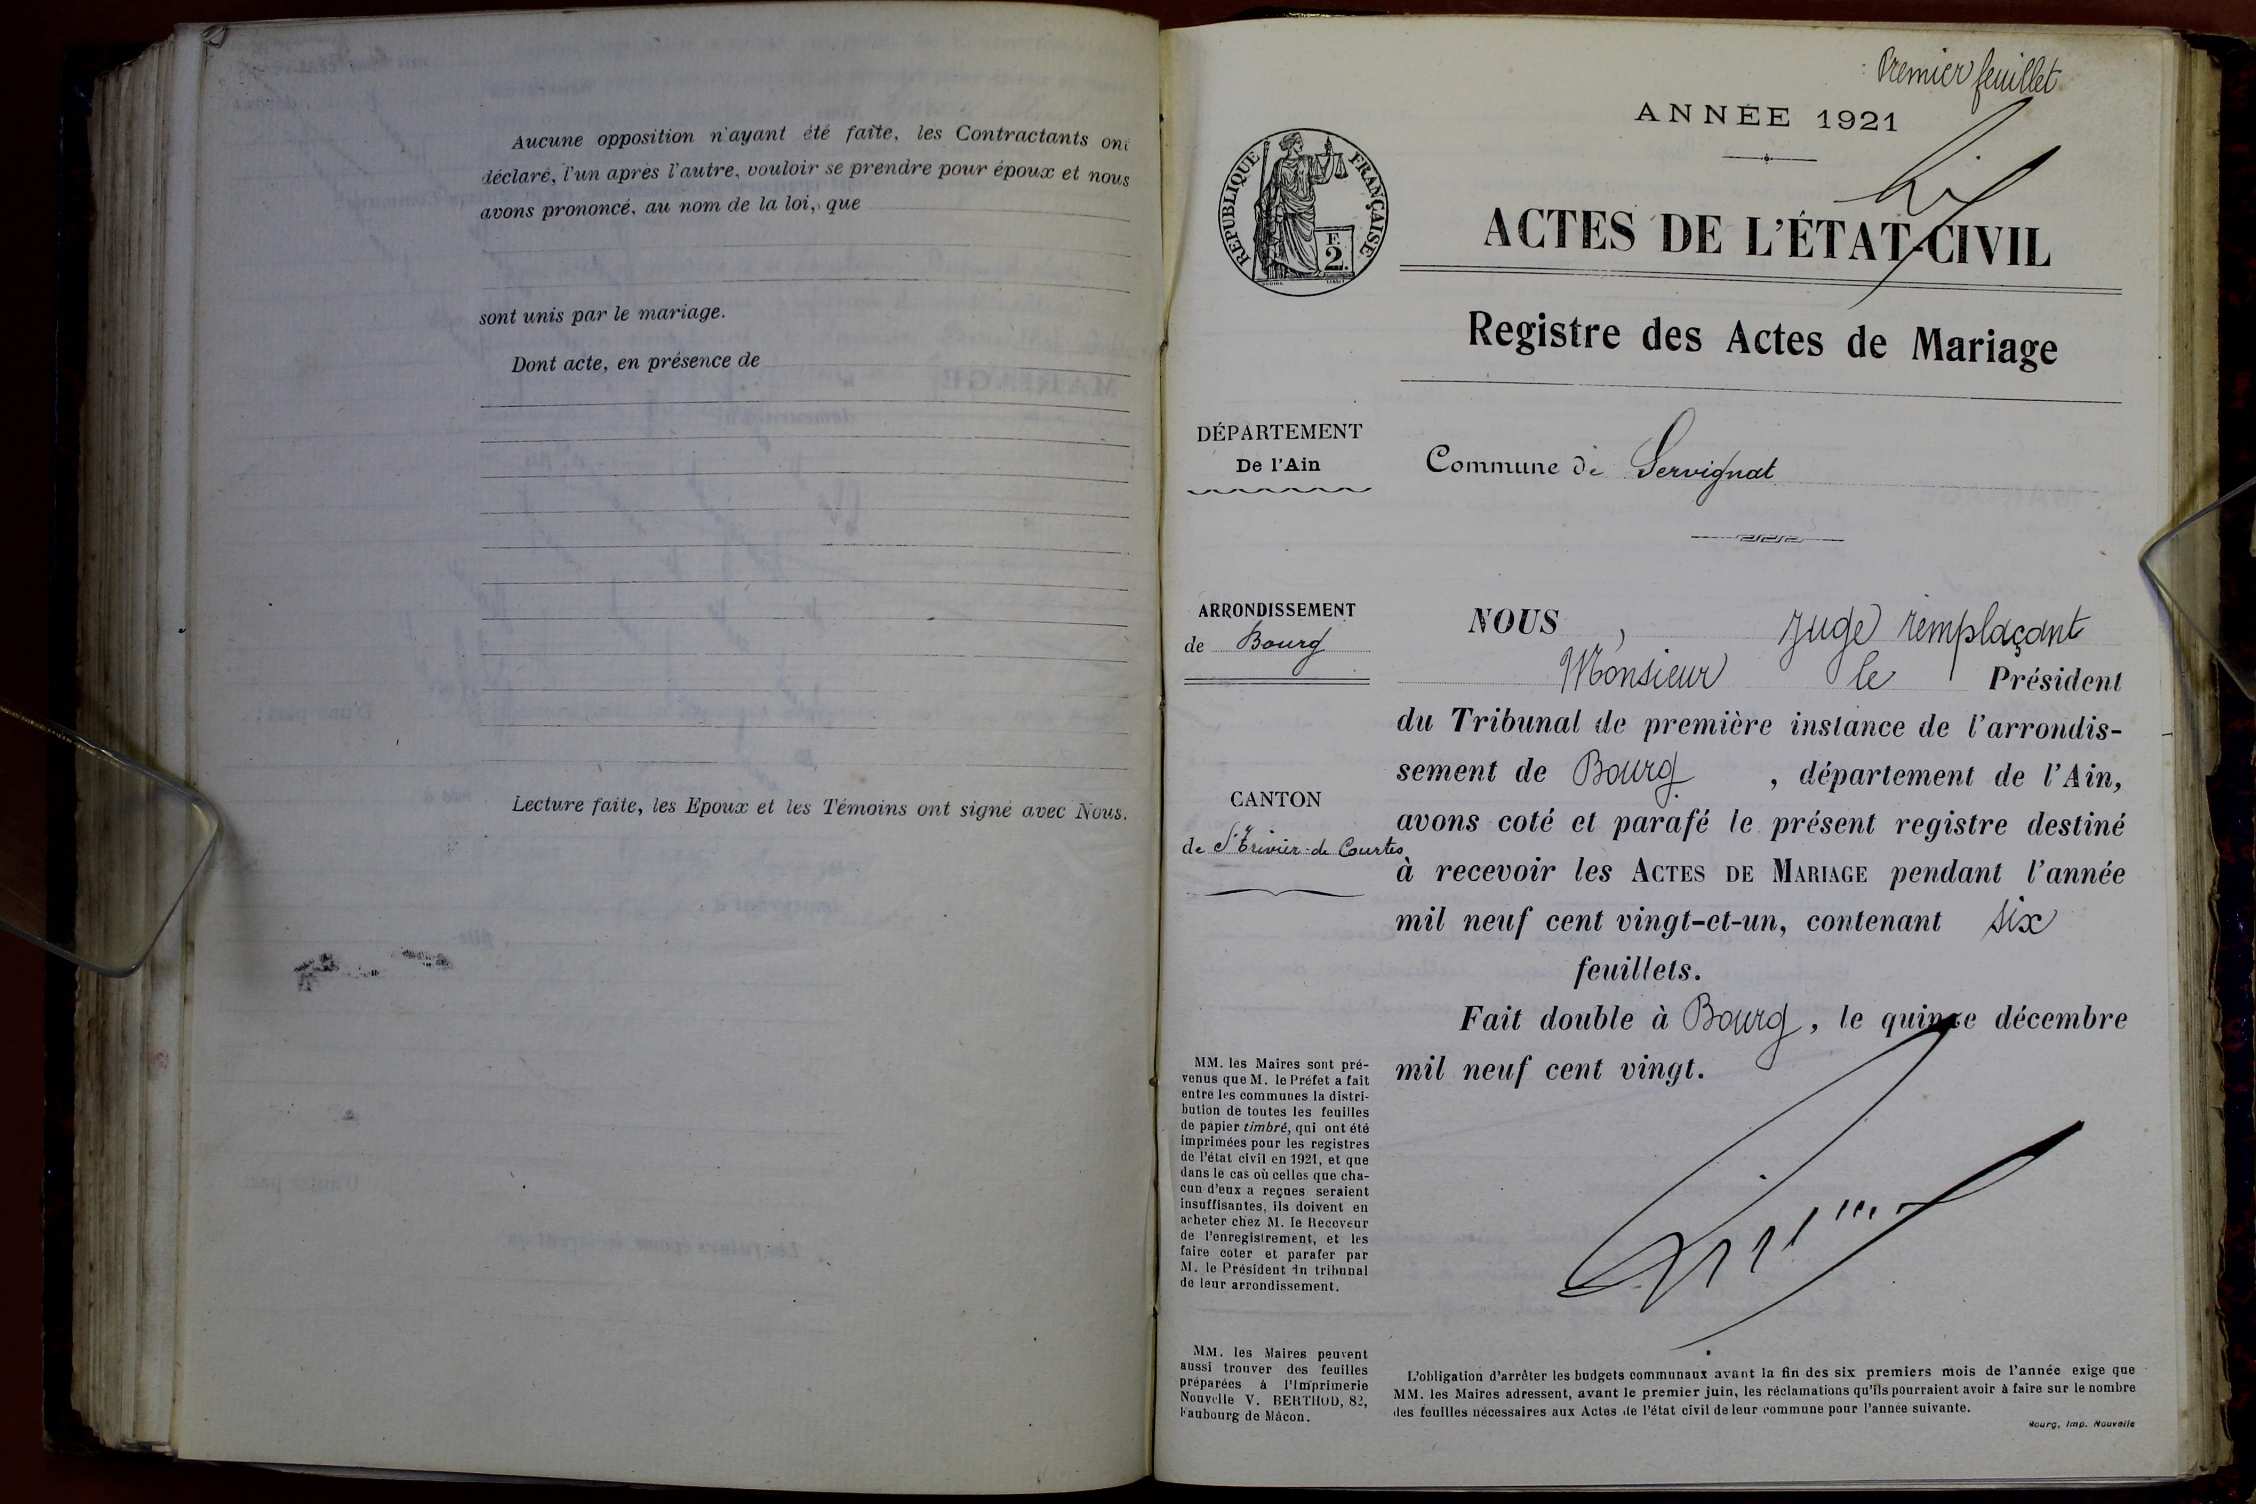 Aucune opposition n'ayant été faite, les Contractants ont
déclaré, l'un après l'autre, vouloir se prendre pour époux et nous
avons prononcé, au nom de la loi, que
sont unis par le mariage.
Dont acte, en présence de
Lecture faite, les Epoux et les Témoins ont signé avec Nous.
Premier feuillet
ANNÉE 1921
RÉPUBLIQUE FRANÇAISE
F.
2.
ACTES DE L'ÉTAT-CIVIL
Registre des Actes de Mariage
DÉPARTEMENT
De l'Ain
Commune de Servignat
ARRONDISSEMENT
de Bourg
CANTON
de St Trivier-de Courtes
NOUS, Juge remplaçant
Monsieur le Président
du Tribunal de première instance de l'arrondis-
sement de Bourg, département de l'Ain,
avons coté et parafé le présent registre destiné
à recevoir les ACTES DE MARIAGE pendant l'année
mil neuf cent vingt-et-un, contenant six
feuillets.
Fait double à Bourg, le quinze décembre
mil neuf cent vingt.
MM. les Maires sont pré-
venus que M. le Préfet a fait
entre les communes la distri-
bution de toutes les feuilles
de papier timbré, qui ont été
imprimées pour les registres
de l'état civil en 1921, et que
dans le cas où celles que cha-
cun d'eux a reçues seraient
insuffisantes, ils doivent en
acheter chez M. le Receveur
de l'enregistrement, et les
faire coter et parafer par
M. le Président du tribunal
de leur arrondissement.
MM. les Maires peuvent
aussi trouver des feuilles
préparées à l'Imprimerie
Nouvelle V. BERTHOD, 82,
Faubourg de Mâcon.
L'obligation d'arrêter les budgets communaux avant la fin des six premiers mois de l'année exige que
MM. les Maires adressent, avant le premier juin, les réclamations qu'ils pourraient avoir à faire sur le nombre
des feuilles nécessaires aux Actes de l'état civil de leur commune pour l'année suivante.
Bourg, Imp. Nouvelle